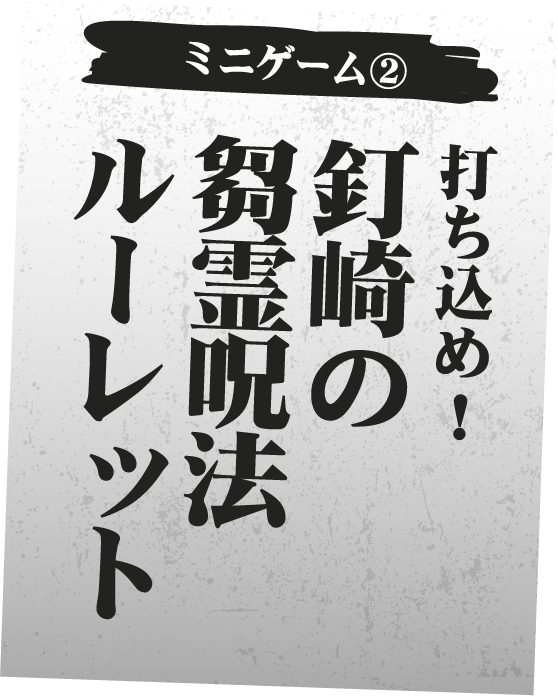 ミニゲーム②
打ち込め！
釘崎の
芻霊呪法
ルーレット